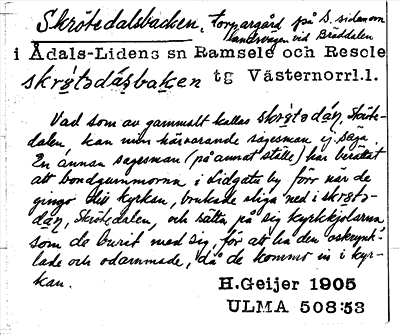 Skrötedalsbacken, torpargård på S. sidan om
landsvägen vid Bräddalen
i Ådals-Lidens sn Ramsele och Resele
skrø̀tədáṣbakən tg Västernorrl.l.
Vad som av gammalt kallas skrø̀tədáṇ, Skröte-
dalen, kan min härvarande sagesman ej säga.
En annan sagesman (på annat ställe) har berättat
att bondgummorna i Lidgatu by förr när de
gingo till kyrkan, brukade stiga ned i skrø̀tə-
dáṇ, Skrötedalen, och sätta på sig kyrkkjolarna,
som de burit med sig, för att ha den oskrynk-
lade och odammade, då de kommo in i kyr-
kan.
H.Geijer 1905
ULMA 508:53